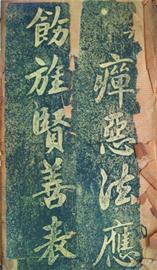 瘴惡法應
飭旌賢善表